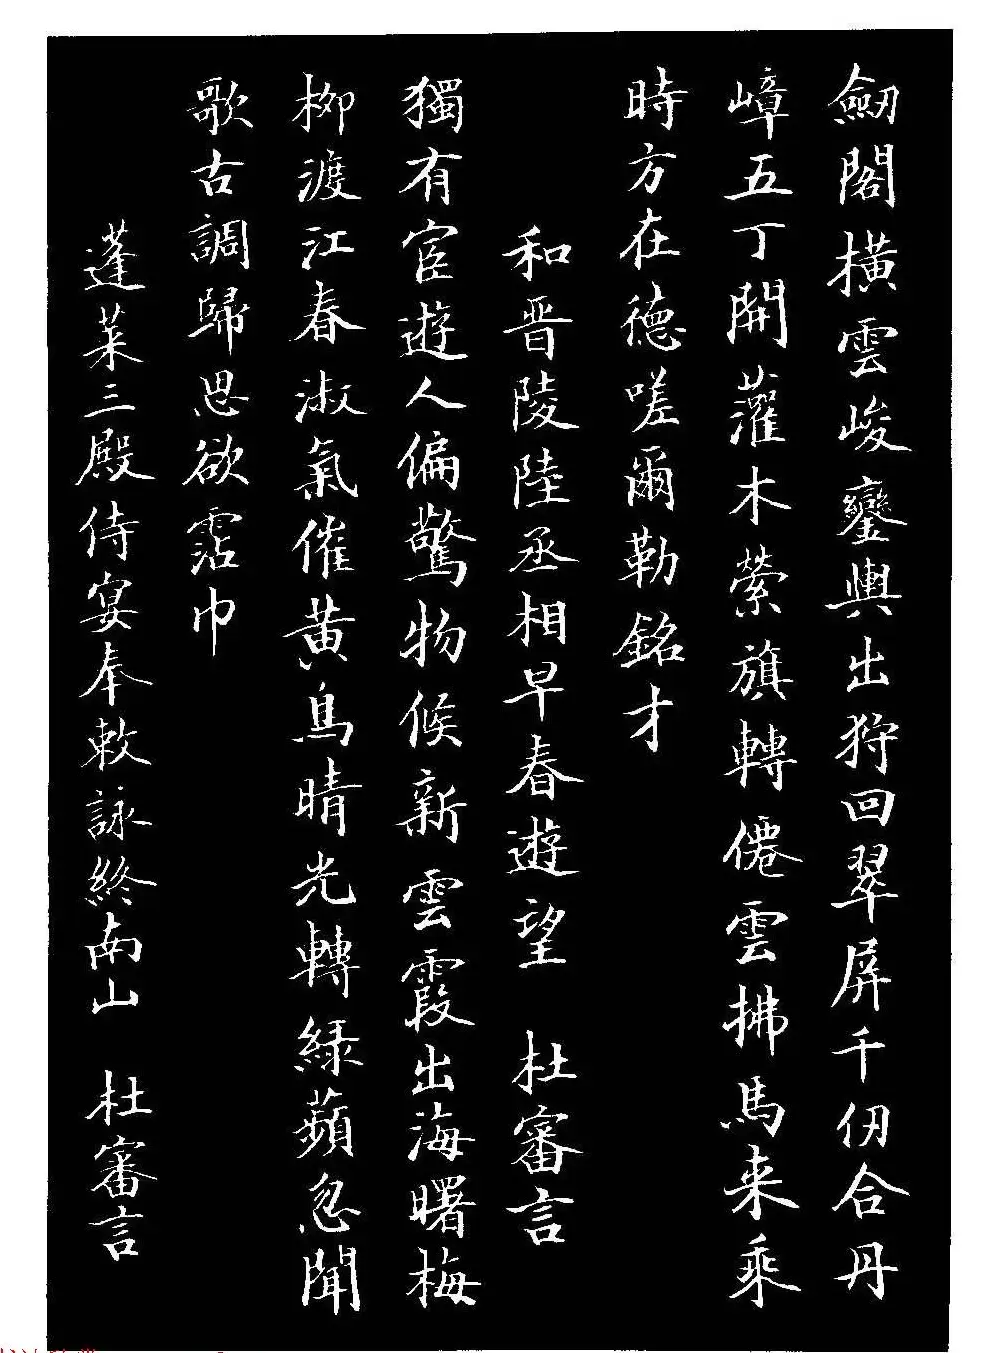 劒閣橫雲峻鑾輿出狩回翠屏千仞合丹
嶂五丁開灌木縈旗轉僊雲拂馬来乘
時方在德嗟爾勒銘才
和晋陵陸丞相早春遊望　杜審言
獨有宦遊人偏驚物候新雲霞出海曙梅
柳渡江春淑氣催黄鳥晴光轉緑蘋忽聞
歌古調歸思欲霑巾
蓬萊三殿侍宴奉敕詠終南山　杜審言